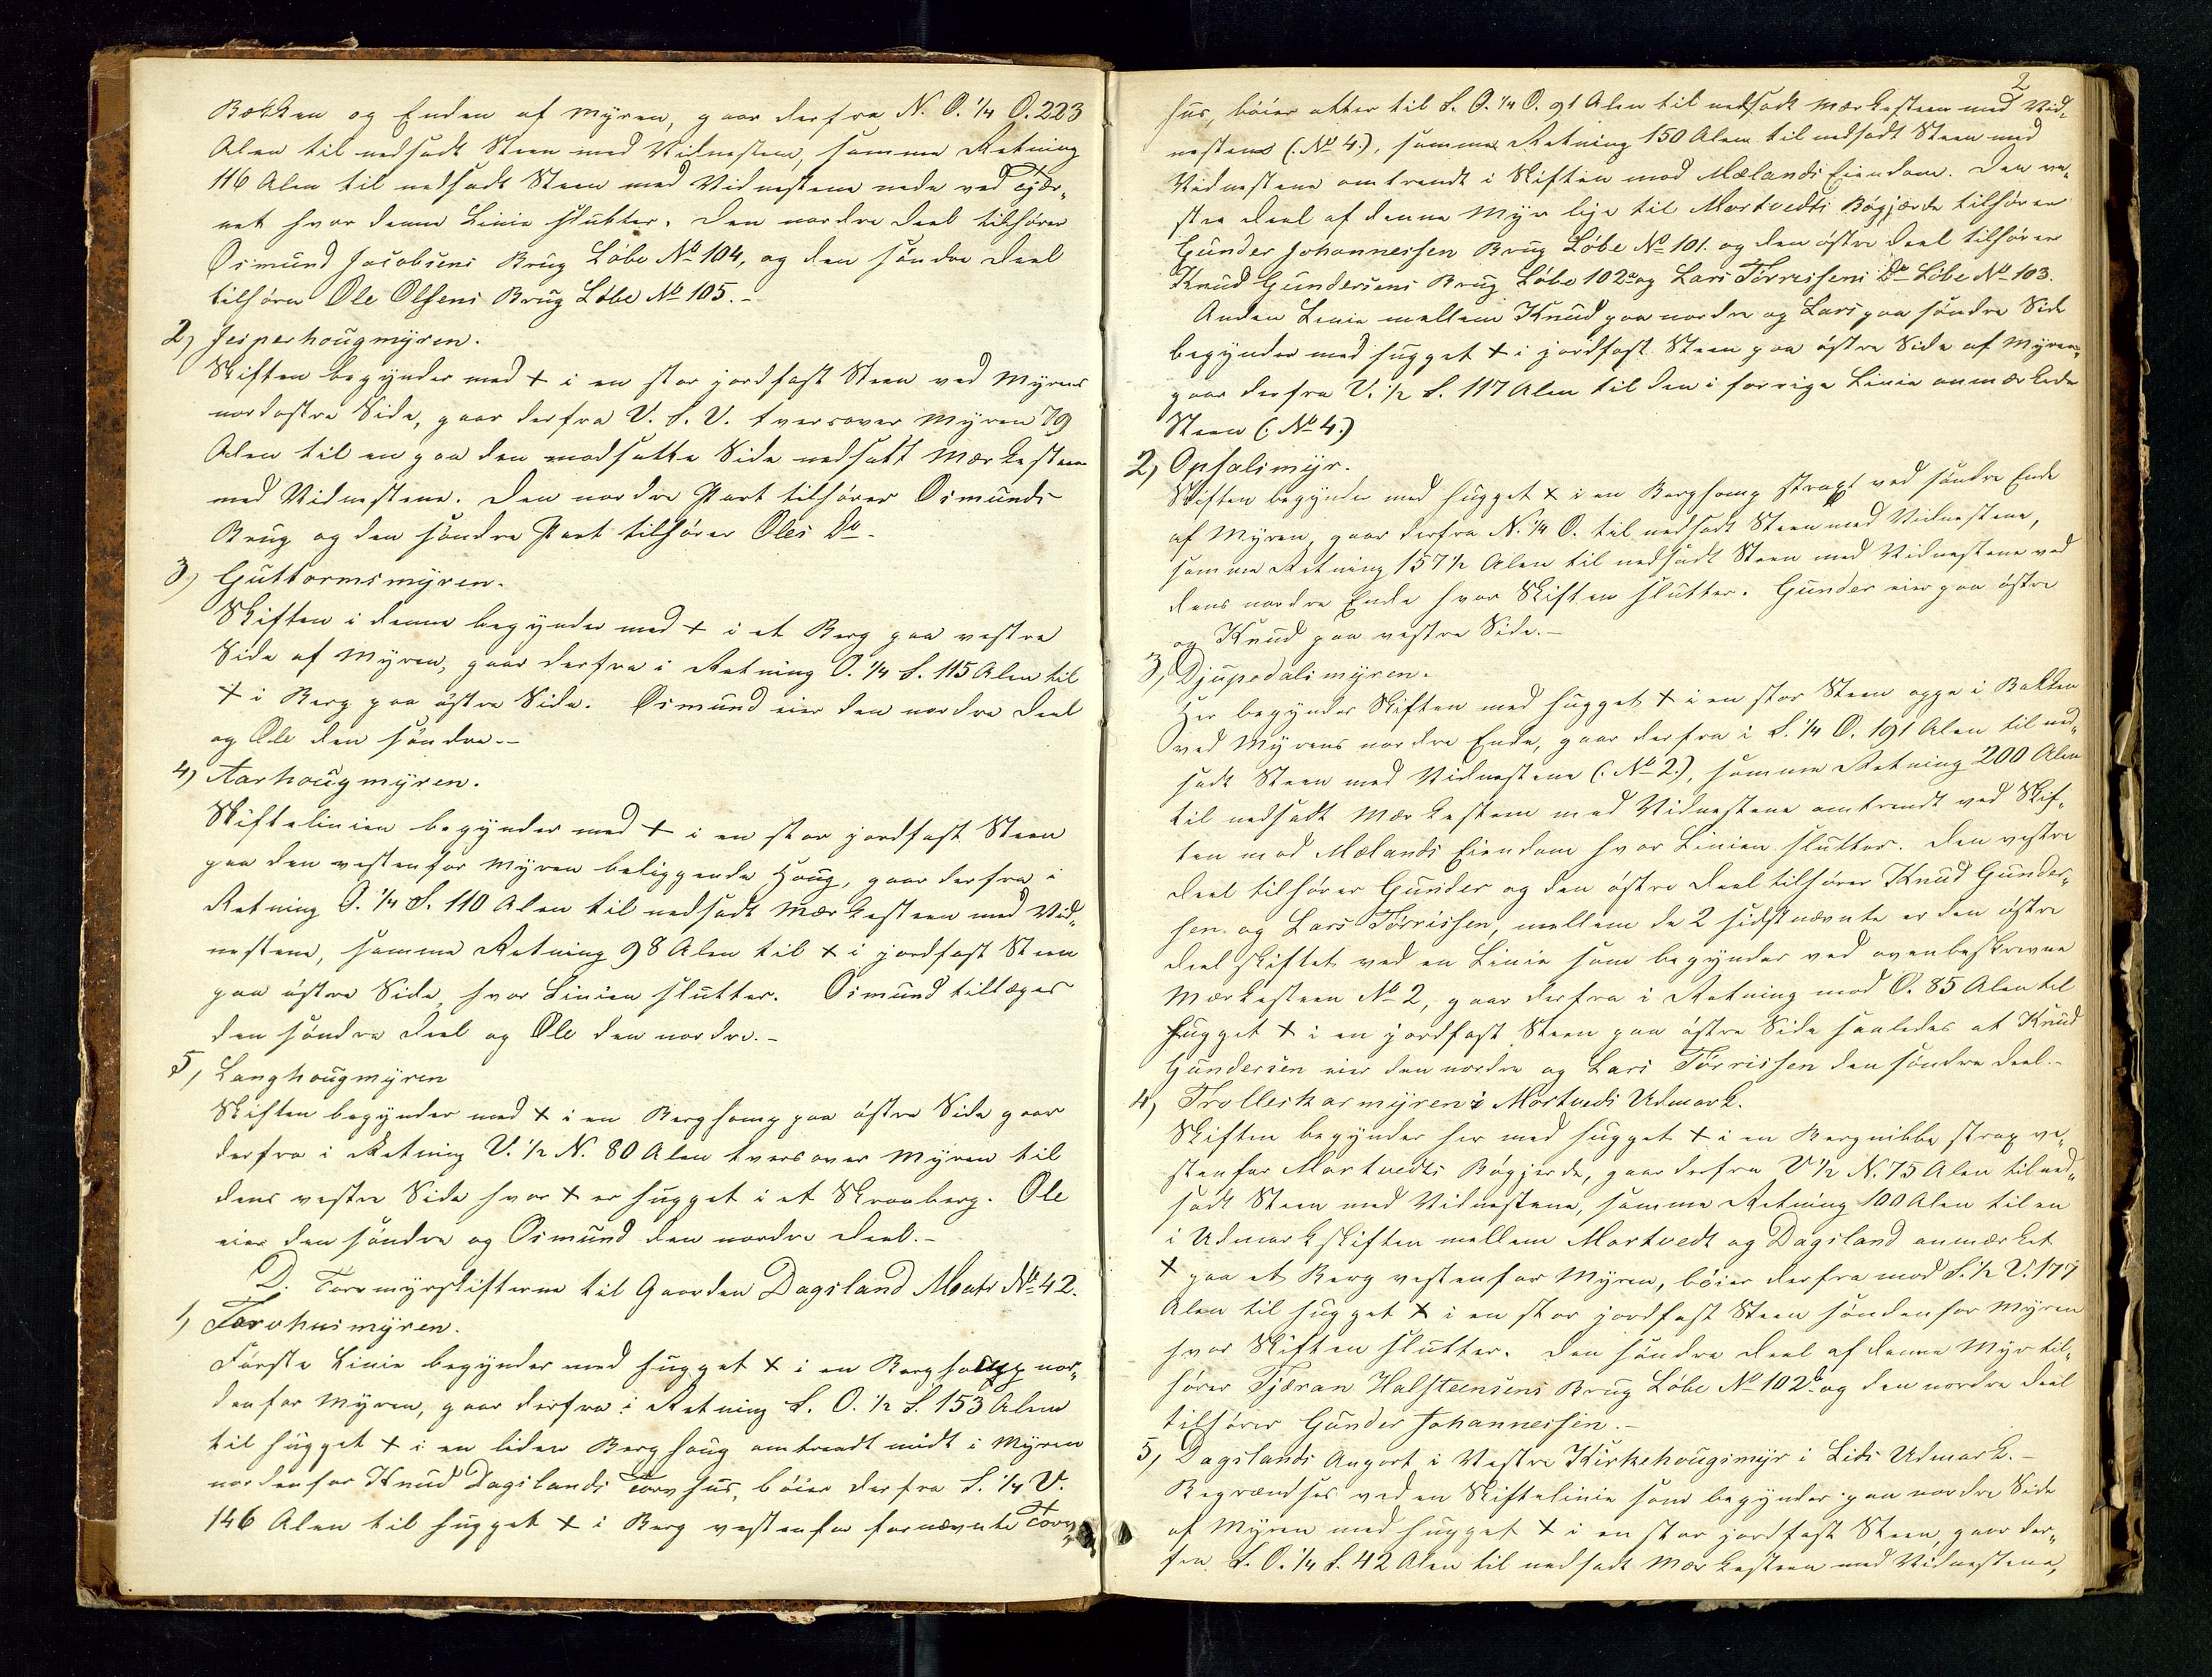 Bækken og Enden af Myren, gaar derfra N. O. 1/4 O. 223
Alen til nedsadt Steen med Vidnestene, samme Retning
116 Alen til nedsadt Steen med Vidnestene nede ved Tjær„
net hvor denne Linie slutter. Den nordre Deel tilhører
Osmund Jacobsens Brug Løbe No 104, og den søndre Deel
tilhører Ole Olsens Brug Løbe No 105.-
2, Jesperhougmyren.
Skiften begynder med + i en stor jordfast Steen ved Myrens
nordøstre Side, gaar derfra V. S. V. tversover Myren 79
Alen til en paa den modsatte Side nedsatt Mærkesteen
med Vidnestene. Den nordre Part tilhører Osmunds
Brug og den søndre Part tilhører Oles Do.-
3, Guttormsmyren.
Skiften i denne begynder med + i et Berg paa vestre
Side af Myren, gaar derfra i Retning O. 1/4 S. 115 Alen til
+ i Berg paa østre Side. Osmund eier den nordre Deel
og Ole den søndre.-
4, Aarhougmyren.
Skiftelinien begynder med + i en stor jordfast Steen
paa den vestenfor Myren beliggende Houg, gaar derfra i
Retning O. 1/4 S. 110 Alen til nedsadt Mærkesteen med Vid„
nestene, samme Retning 98 Alen til + i jordfast Steen
paa østre Side, hvor Linien slutter. Osmund tillæges
den søndre Deel og Ole den nordre.-
5, Langhougmyren
Skiften begynder med + i en Berghamp paa østre Side gaar
derfra i Retning V. 1/2 N. 80 Alen tversover Myren til
dens vestre Side hvor + er hugget i et Skraaberg. Ole
eier den søndre og Osmund den nordre Deel.-
D. Torvmyrskifterne til Gaarden Dagsland Matr No 42.
1, Torvhusmyren.
Første Linie begynder med hugget + i en nor„
denfor Myren, gaar derfra i Retning S. O. 1/2 S. 153 Alen
til hugget + i en liden Berghoug omtrendt midt i Myren
nordenfor Knud Dagslands Torvhus, bøier derfra S. 1/4 V.
146 Alen til hugget + i Berg vestenfor fornævnte Torv„
2
hus, bøier atter til S. O. 1/4 O. 91 Alen til nedsadt Mærkesteen med Vid„
nestene (: No 4:), samme Retning 150 Alen til nedsadt Steen med
Vidnestene omtrendt i Skiften mod Mælands Eiendom. Den ve„
stre Deel af denne Myr lige til Mortvedts Bøgjærde tilhører
Gunder Johannessen Brug Løbe No 101. og den østre Deel tilhører
Knud Gundersens Brug Løbe 102a og Lars Tørressens Do Løbe No 103.
Anden Linie mellem Knud paa nordre og Lars paa søndre Side
begynder med hugget + i jordfast Steen paa østre Side af Myren,
gaar derfra V. 1/2 S. 117 Alen til den i forrige Linie anmærkede
Steen (: No 4:)
2, Opsalsmyr.
Skiften begynder med hugget + i en Berghamp straxt ved søndre Ende
af Myren, gaar derfra N. 1/4 O. til nedsadt Steen med Vidnestene,
samme Retning 157 1/2 Alen til nedsadt Steen med Vidnestene ved
dens nordre Ende hvor Skiften slutter. Gunder eier paa østre
og Knud paa vestre Side.-
3, Djupedalsmyren.
Her begynder Skiften med hugget + i en stor Steen oppe i Bakken
ved Myrens nordre Ende, gaar derfra i S. 1/4 O. 191 Alen til ned„
sadt Steen med Vidnestene (: No 2:), samme Retning 200 Alen
til nedsadt Mærkesteen med Vidnestene omtrendt ved Skif„
ten mod Mælands Eiendom hvor Linien slutter. Den vestre
Deel tilhører Gunder og den østre Deel tilhører Knud Gunder„
sen og Lars Tørrissen, mellem de 2 sidstnævnte er den østre
Deel skiftet ved en Linie som begynder ved ovenbeskrevne
Mærkesteen No 2, gaar derfra i Retning mod O. 85 Alen til
hugget + i en jordfast Steen paa østre Side saaledes at Knud
Gundersen eier den nordre og Lars Tørrissen den søndre Deel.-
4, Trolleskarmyren i Mortveds Udmark.
Skiften begynder her med hugget + i en Bergnibbe strax ve„
stenfor Mortvedts Bøgjerde, gaar derfra V 1/2 N. 75 Alen til ned„
sadt Steen med Vidnestene, samme Retning 100 Alen til en
i Udmarkskiften mellem Mortvedt og Dagsland anmærket
+ paa et Berg vestenfor Myren, bøier derfra mod S. 1/2 V. 177
Alen til hugget + i en stor jordfast Steen søndenfor Myren
hvor Skiften slutter. Den søndre Deel af denne Myr til„
hører Tjæran Halsteensens Brug Løbe No 102b og den nordre Deel
tilhører Gunder Johannessen.-
5, Dagslands Anpart i Vestre Kirkehougsmyr i Lids Udmark.-
Begrændses ved en Skiftelinie som begynder paa nordre Side
af Myren med hugget + i en stor jordfast Steen, gaar der„
fra S. O. 1/4 S. 42 Alen til nedsadt Mærkesteen med Vidnestene,